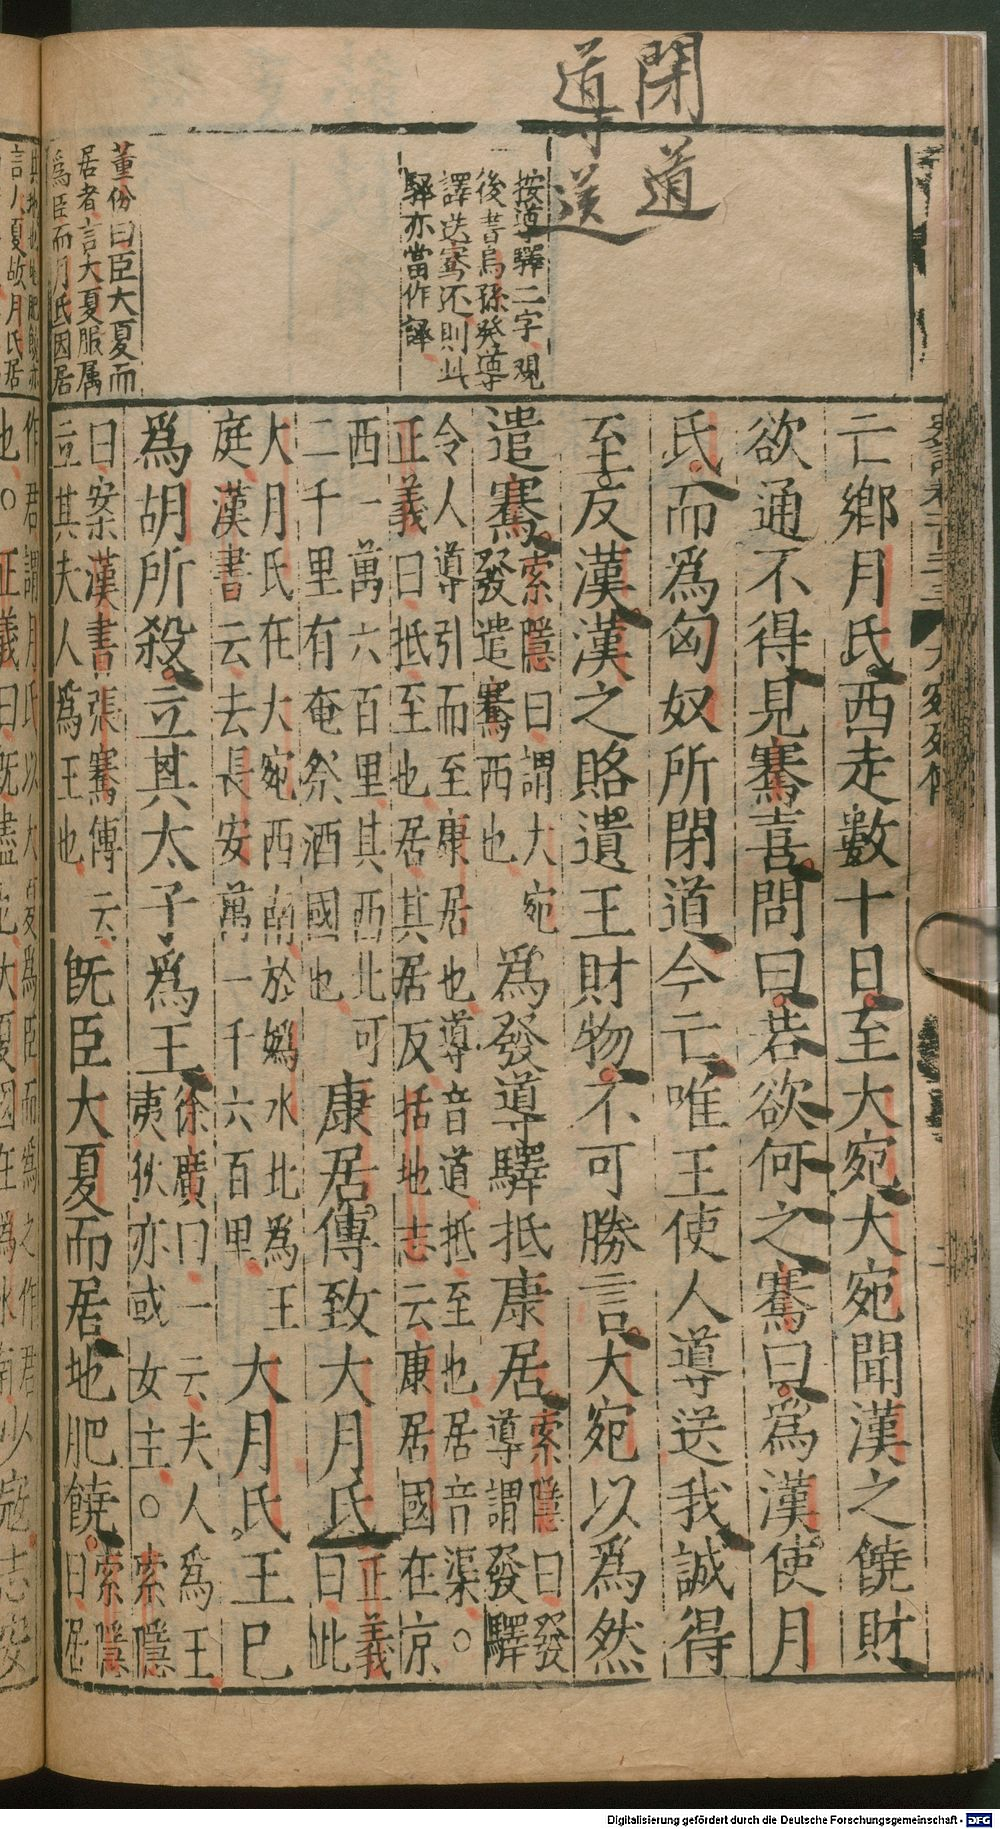 閉道
導送
按導驛二字觀
後書烏孫發導
譯送騫还則此
驛亦當作譯
董份曰臣大夏而
居者言大夏服屬
爲臣而月氏因居
亡鄉月氏西走數十日至大宛大宛聞漢之饒財
欲通不得見騫喜問曰若欲何之騫曰爲漢使月
氏而爲匈奴所閉道今亡唯王使人導送我誠得
至反漢漢之賂遺王財物不可勝言大宛以爲然
遣騫索隱曰謂大宛
發遣騫西也爲發導驛抵康居索隱曰發
導謂發驛
令人導引而至康居也導音道抵至也居音渠○
正義曰抵至也居其居反括地志云康居國在京
西一萬六百里其西北可
二千里有奄祭酒國也康居傳致大月氏正義
曰此
大月氏在大宛西南於嬀水北爲王
庭漢書云去長安萬一千六百里大月氏王巳
爲胡所殺立其太子爲王徐廣曰一云夫人爲王
夷狄亦或女主○索隱
曰案漢書張騫傳云
立其夫人爲王也旣臣大夏而居地肥饒索隱
曰居
作君謂月氏以大夏爲臣而爲之作君以
也○正義曰旣盡也大夏國在嬀水南
Digitalisierung gefördert durch die Deutsche Forschungsgemeinschaft - DFG